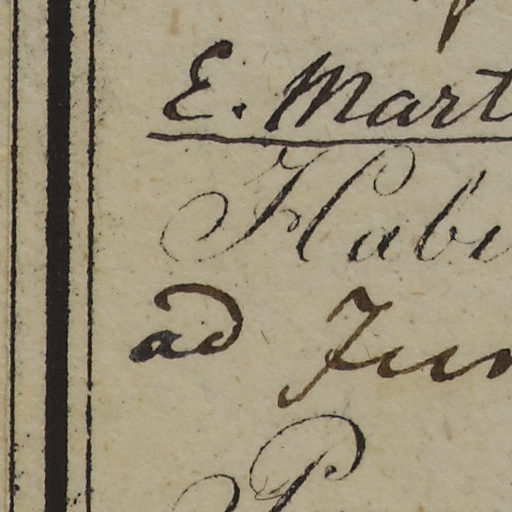 E. Mart
Habi
ad Jun
P